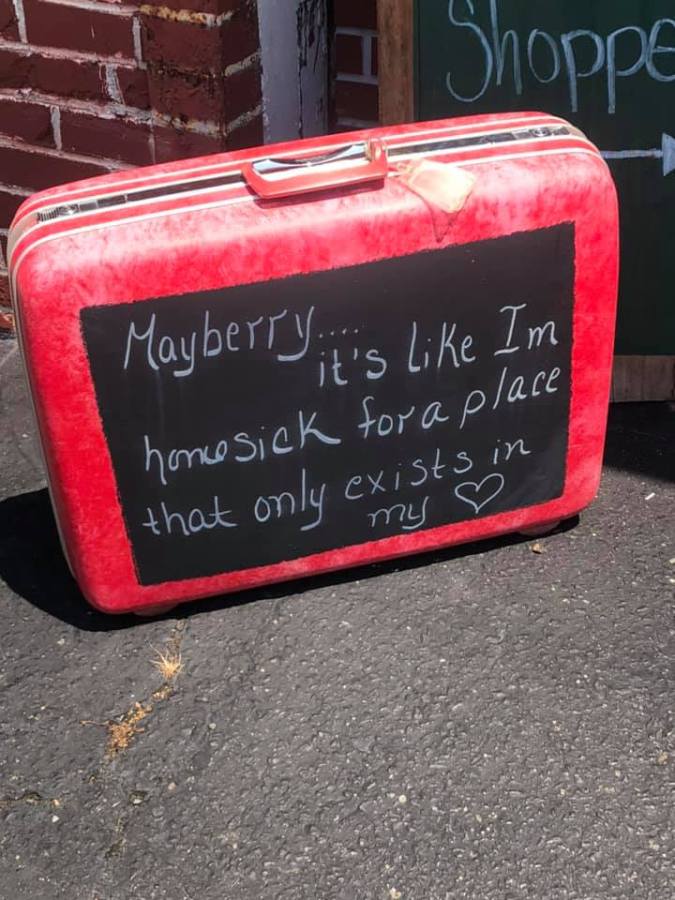 Shoppe
Mayberry....
it's like Im
homesick for a place
that only exists in
my ♡